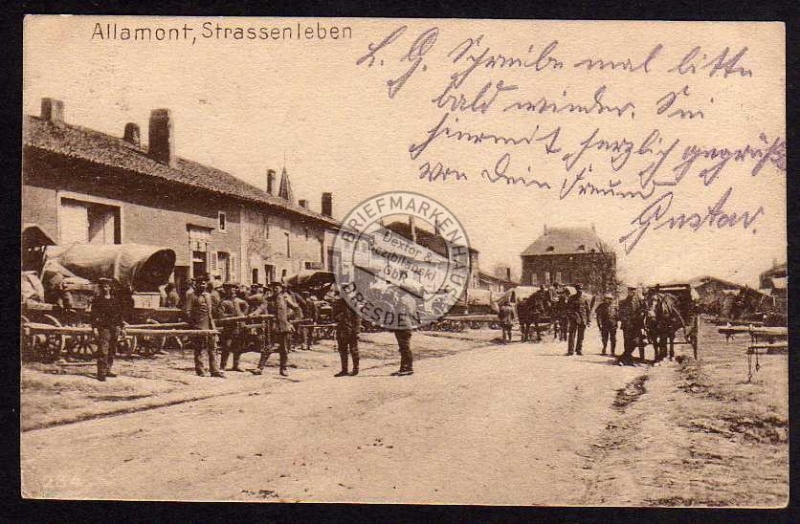 Allamont, Strassenleben
L. G. Schreibe mal bitte
bald wieder. Sei
hiermit herzlich gegrüßt
von Dein Freund
Gustav.
BRIEFMARKENHAUS
GbR
DRESDEN
234